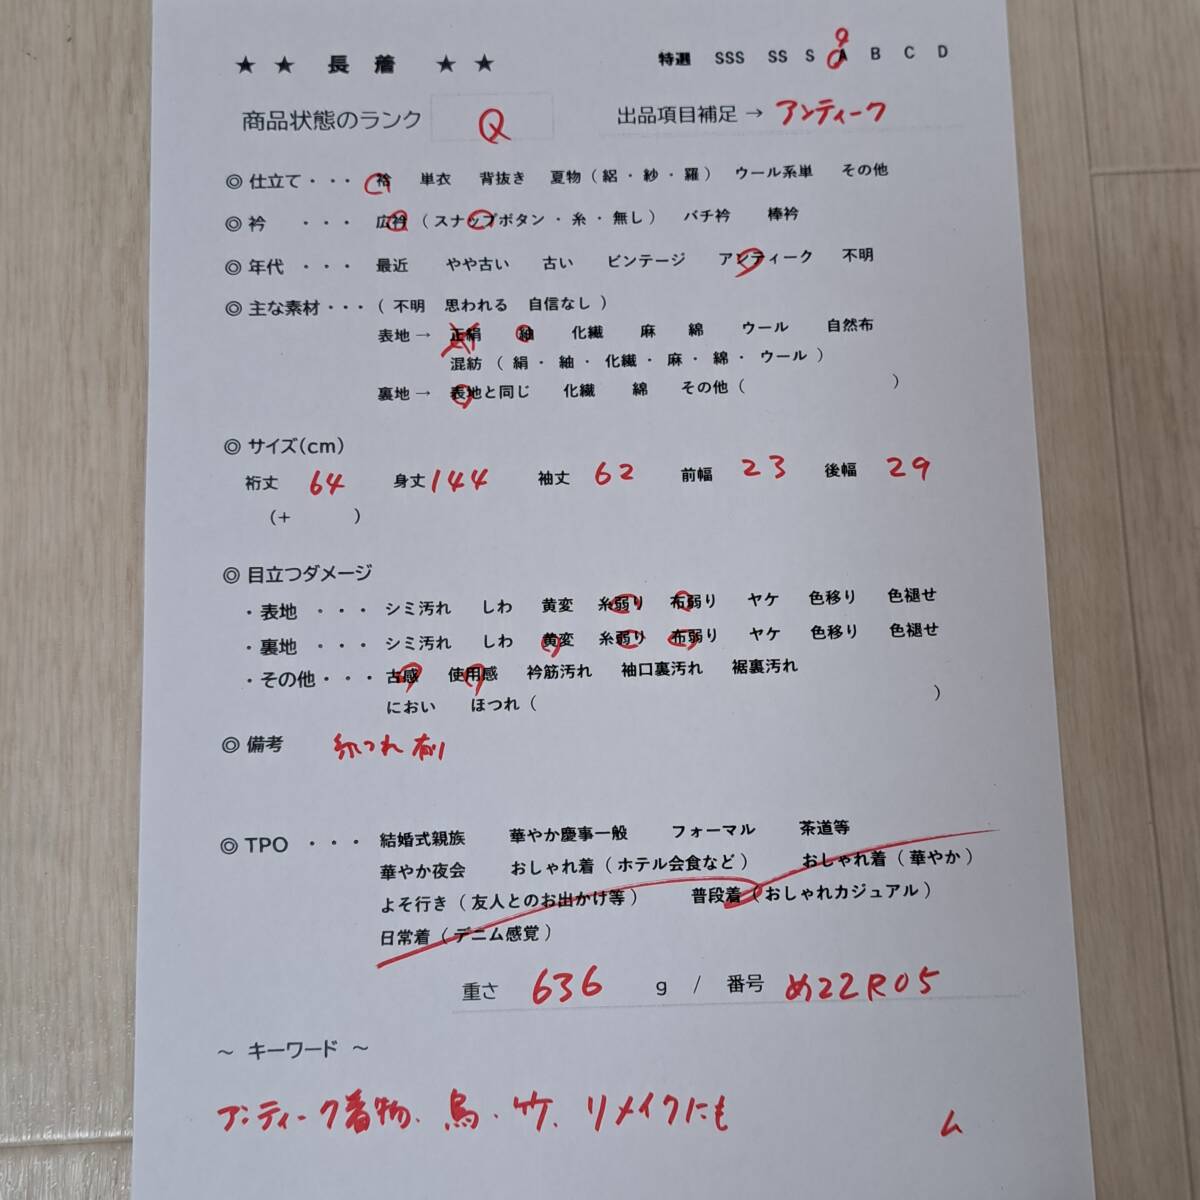 ★ ★ 長 着 ★ ★
特選 SSS SS S A B C D
商品状態のランク Q 出品項目補足 → アンティーク
◎ 仕立て ・・・ 袷 単衣 背抜き 夏物（絽・紗・羅） ウール系単 その他
◎ 衿 ・・・ 広衿（スナップボタン・糸・無し） バチ衿 棒衿
◎ 年代 ・・・ 最近 やや古い 古い ビンテージ アンティーク 不明
◎ 主な素材・・・（不明 思われる 自信なし）
表地→ 正絹 紬 化繊 麻 綿 ウール 自然布
混紡（絹・紬・化繊・麻・綿・ウール）
裏地→ 表地と同じ 化繊 綿 その他（ ）
◎ サイズ(cm)
裄丈 64 身丈 144 袖丈 62 前幅 23 後幅 29
（+ ）
◎ 目立つダメージ
・表地 ・・・ シミ汚れ しわ 黄変 糸弱り 布弱り ヤケ 色移り 色褪せ
・裏地 ・・・ シミ汚れ しわ 黄変 糸弱り 布弱り ヤケ 色移り 色褪せ
・その他・・・ 古感 使用感 衿筋汚れ 袖口裏汚れ 裾裏汚れ
におい ほつれ（ ）
◎ 備考 糸つれ有り
◎ TPO ・・・ 結婚式親族 華やか慶事一般 フォーマル 茶道等
華やか夜会 おしゃれ着（ホテル会食など） おしゃれ着（華やか）
よそ行き（友人とのお出かけ等） 普段着（おしゃれカジュアル）
日常着（デニム感覚）
重さ 636 g / 番号 め22R05
～ キーワード ～
アンティーク着物、鳥・竹、リメイクにも
ム